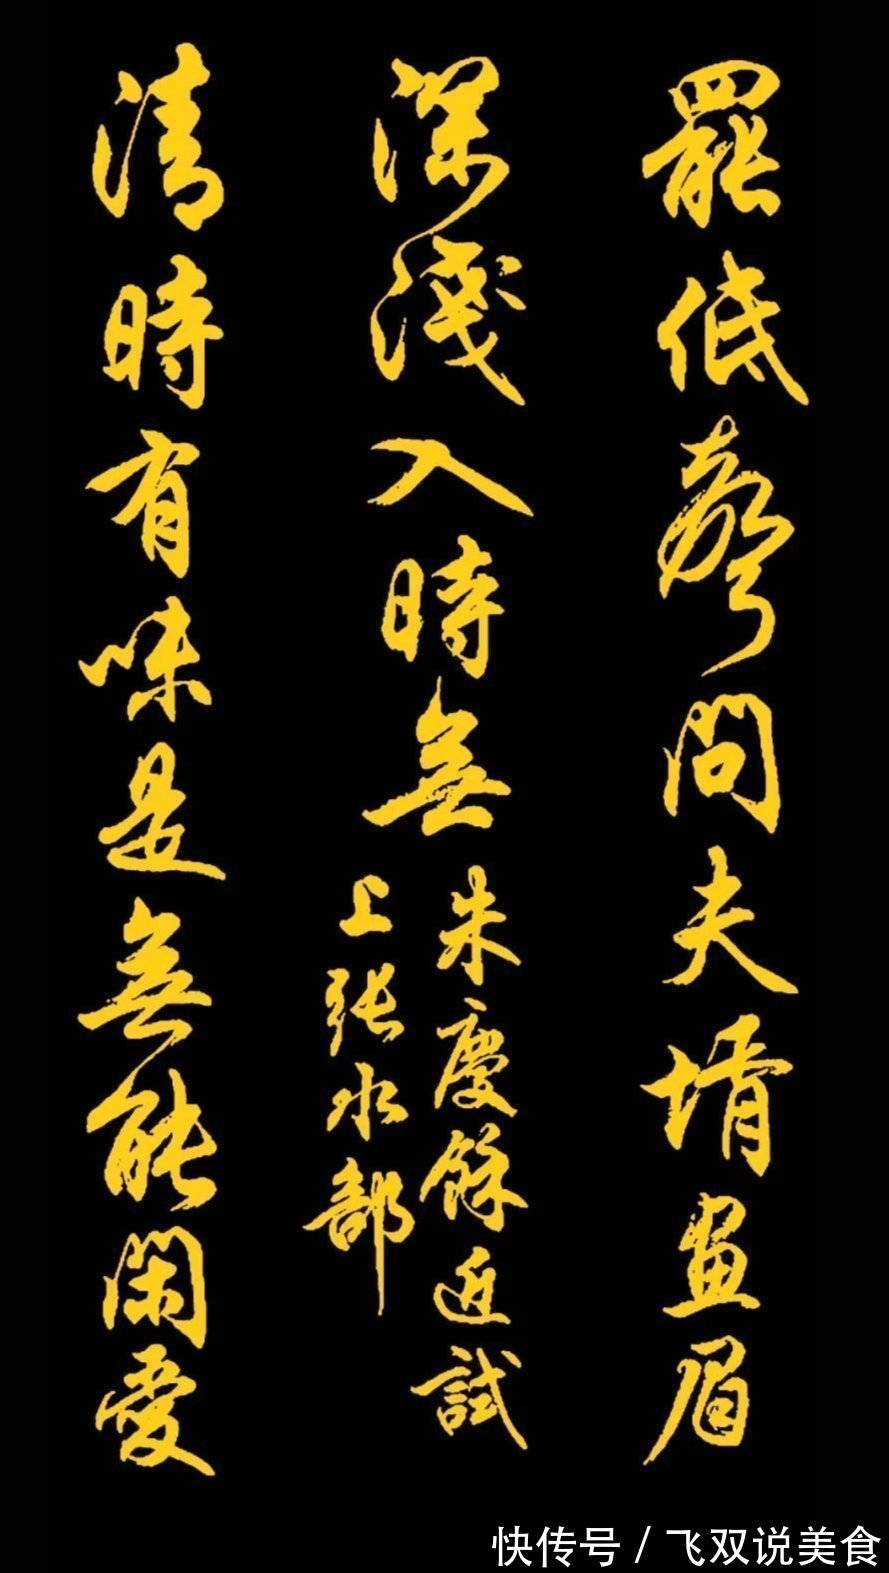 罷低聲問夫壻畫眉
深淺入時無
朱慶餘近試
上張水部
清時有味是無能閑愛
快传号 / 飞双说美食